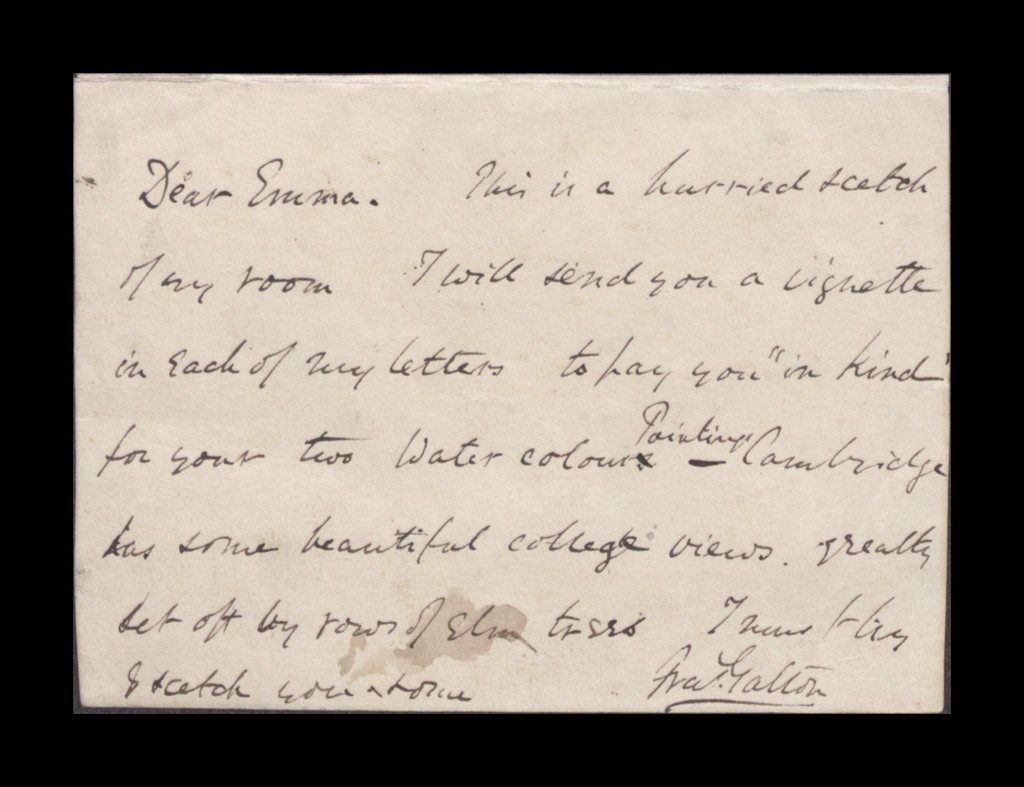 Dear Emma. This is a hurried scetch
of my room I will send you a vignette
in each of my letters to pay you "in kind"
for your two Water colour Paintings – Cambridge
has some beautiful college views. greatly
set off by rows of Elm trees I must try
& scetch you some Fras. Galton